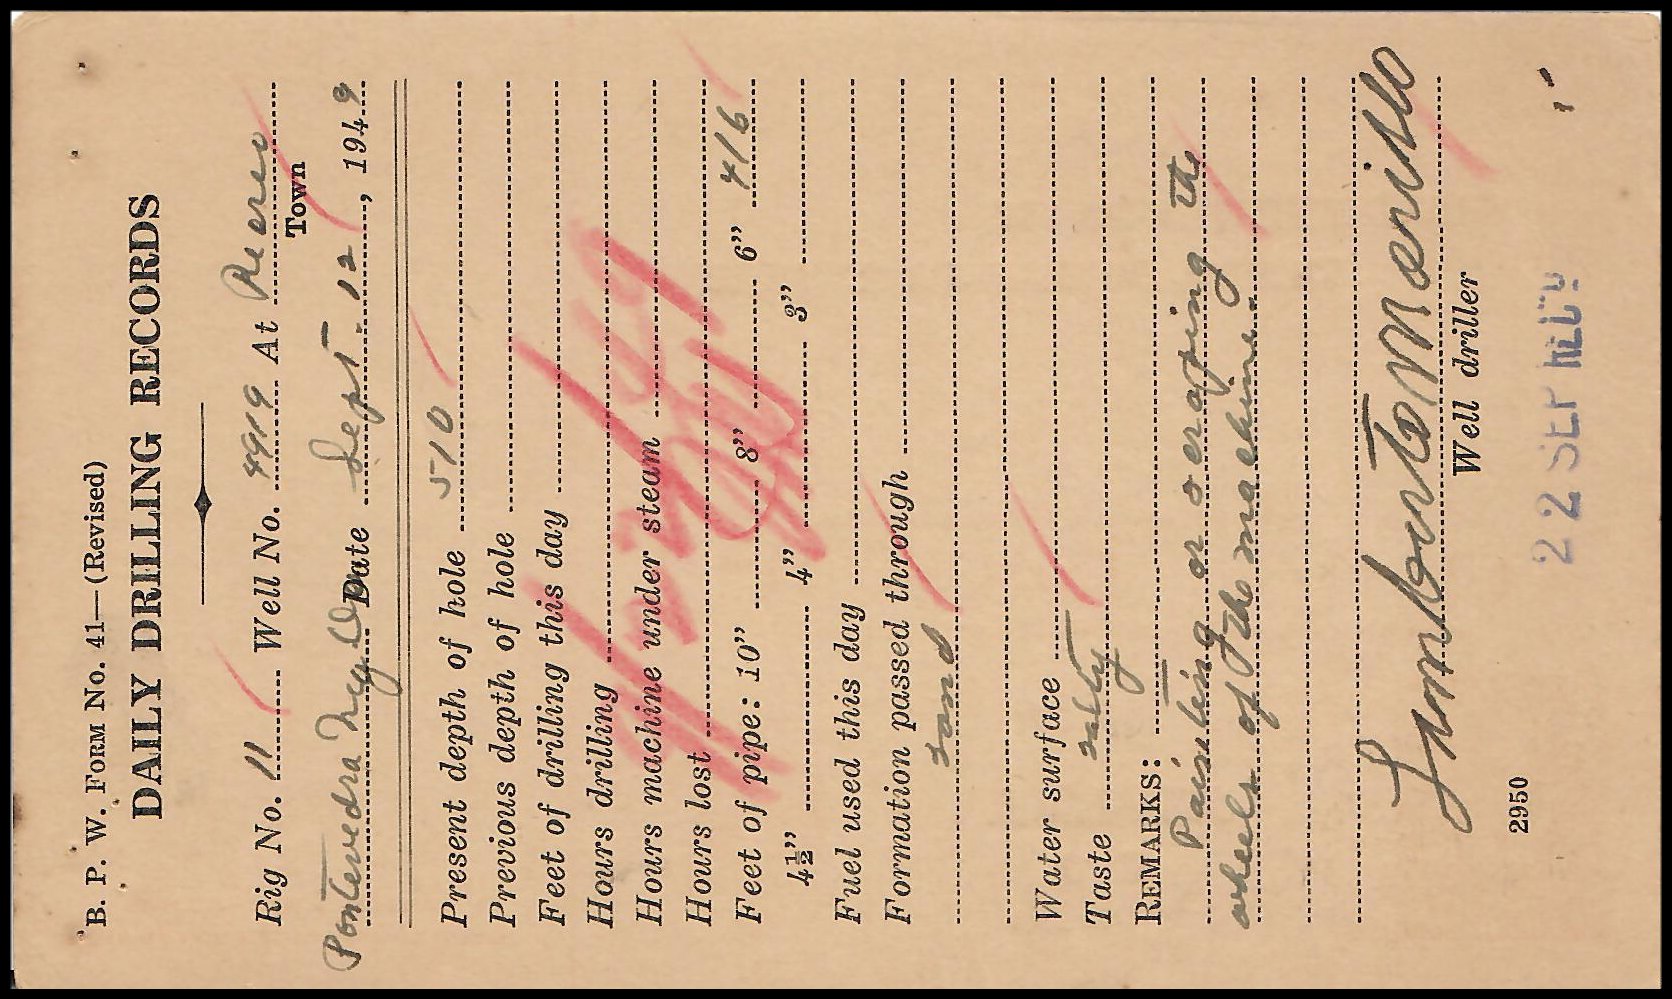 B. P. W. FORM No. 41—(Revised)
DAILY DRILLING RECORDS
Rig No. 11 Well No. 4919 At
Town
Pontevedra Neg Occ Date Sept. 12, 1949
Present depth of hole 510
Previous depth of hole
Feet of drilling this day
Hours drilling
Hours machine under steam
Hours lost
Feet of pipe: 10” 8” 6” 416
4½” 4” 4” 3”
Fuel used this day
Formation passed through
sand
Water surface
Taste salty
REMARKS:
Painting or scraping the
wheels of the machine.
Well driller
2950
22 SEP